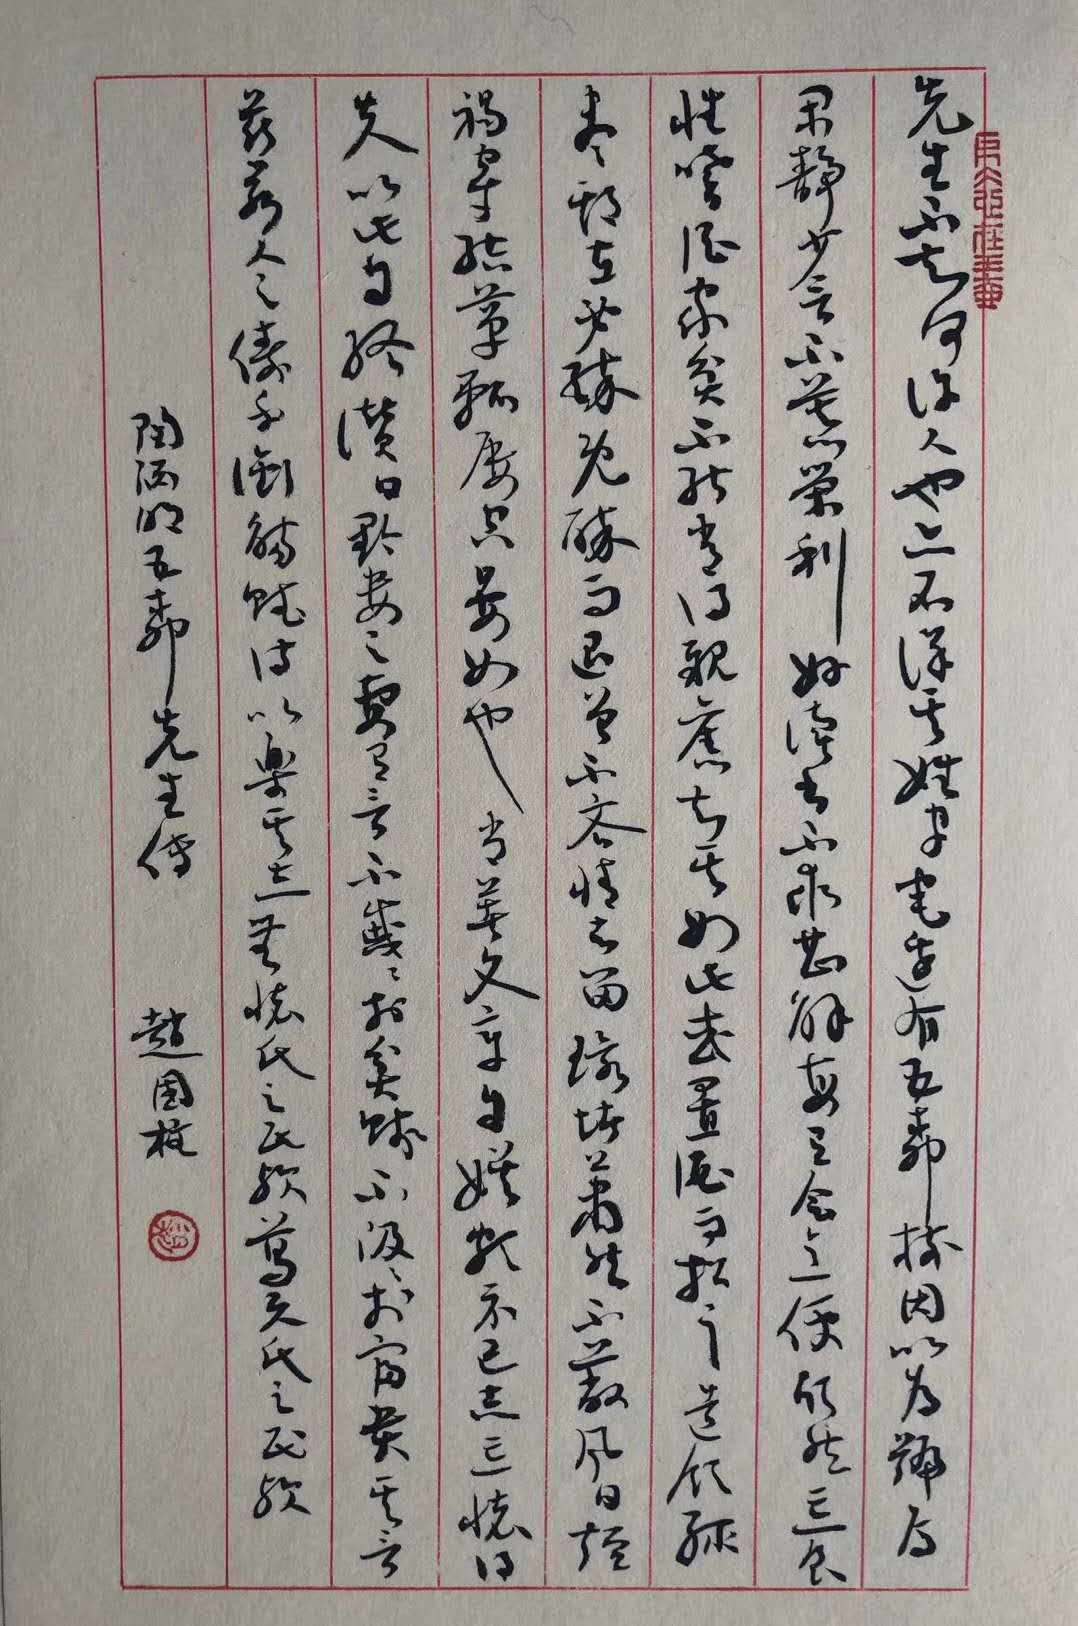 先生不知何許人也亦不詳其姓字宅邊有五柳樹因以為號焉
閑靜少言不慕榮利好讀書不求甚解每有會意便欣然忘食
性嗜酒家貧不能常得親舊知其如此或置酒而招之造飲輒
盡期在必醉既醉而退曾不吝情去留環堵蕭然不蔽風日短
褐穿結簞瓢屢空晏如也常著文章自娛頗示己志忘懷得
失以此自終贊曰黔婁之妻有言不戚戚於貧賤不汲汲於富貴其言
茲若人之儔乎銜觴賦詩以樂其志無懷氏之民歟葛天氏之民歟
陶淵明五柳先生傳 趙國